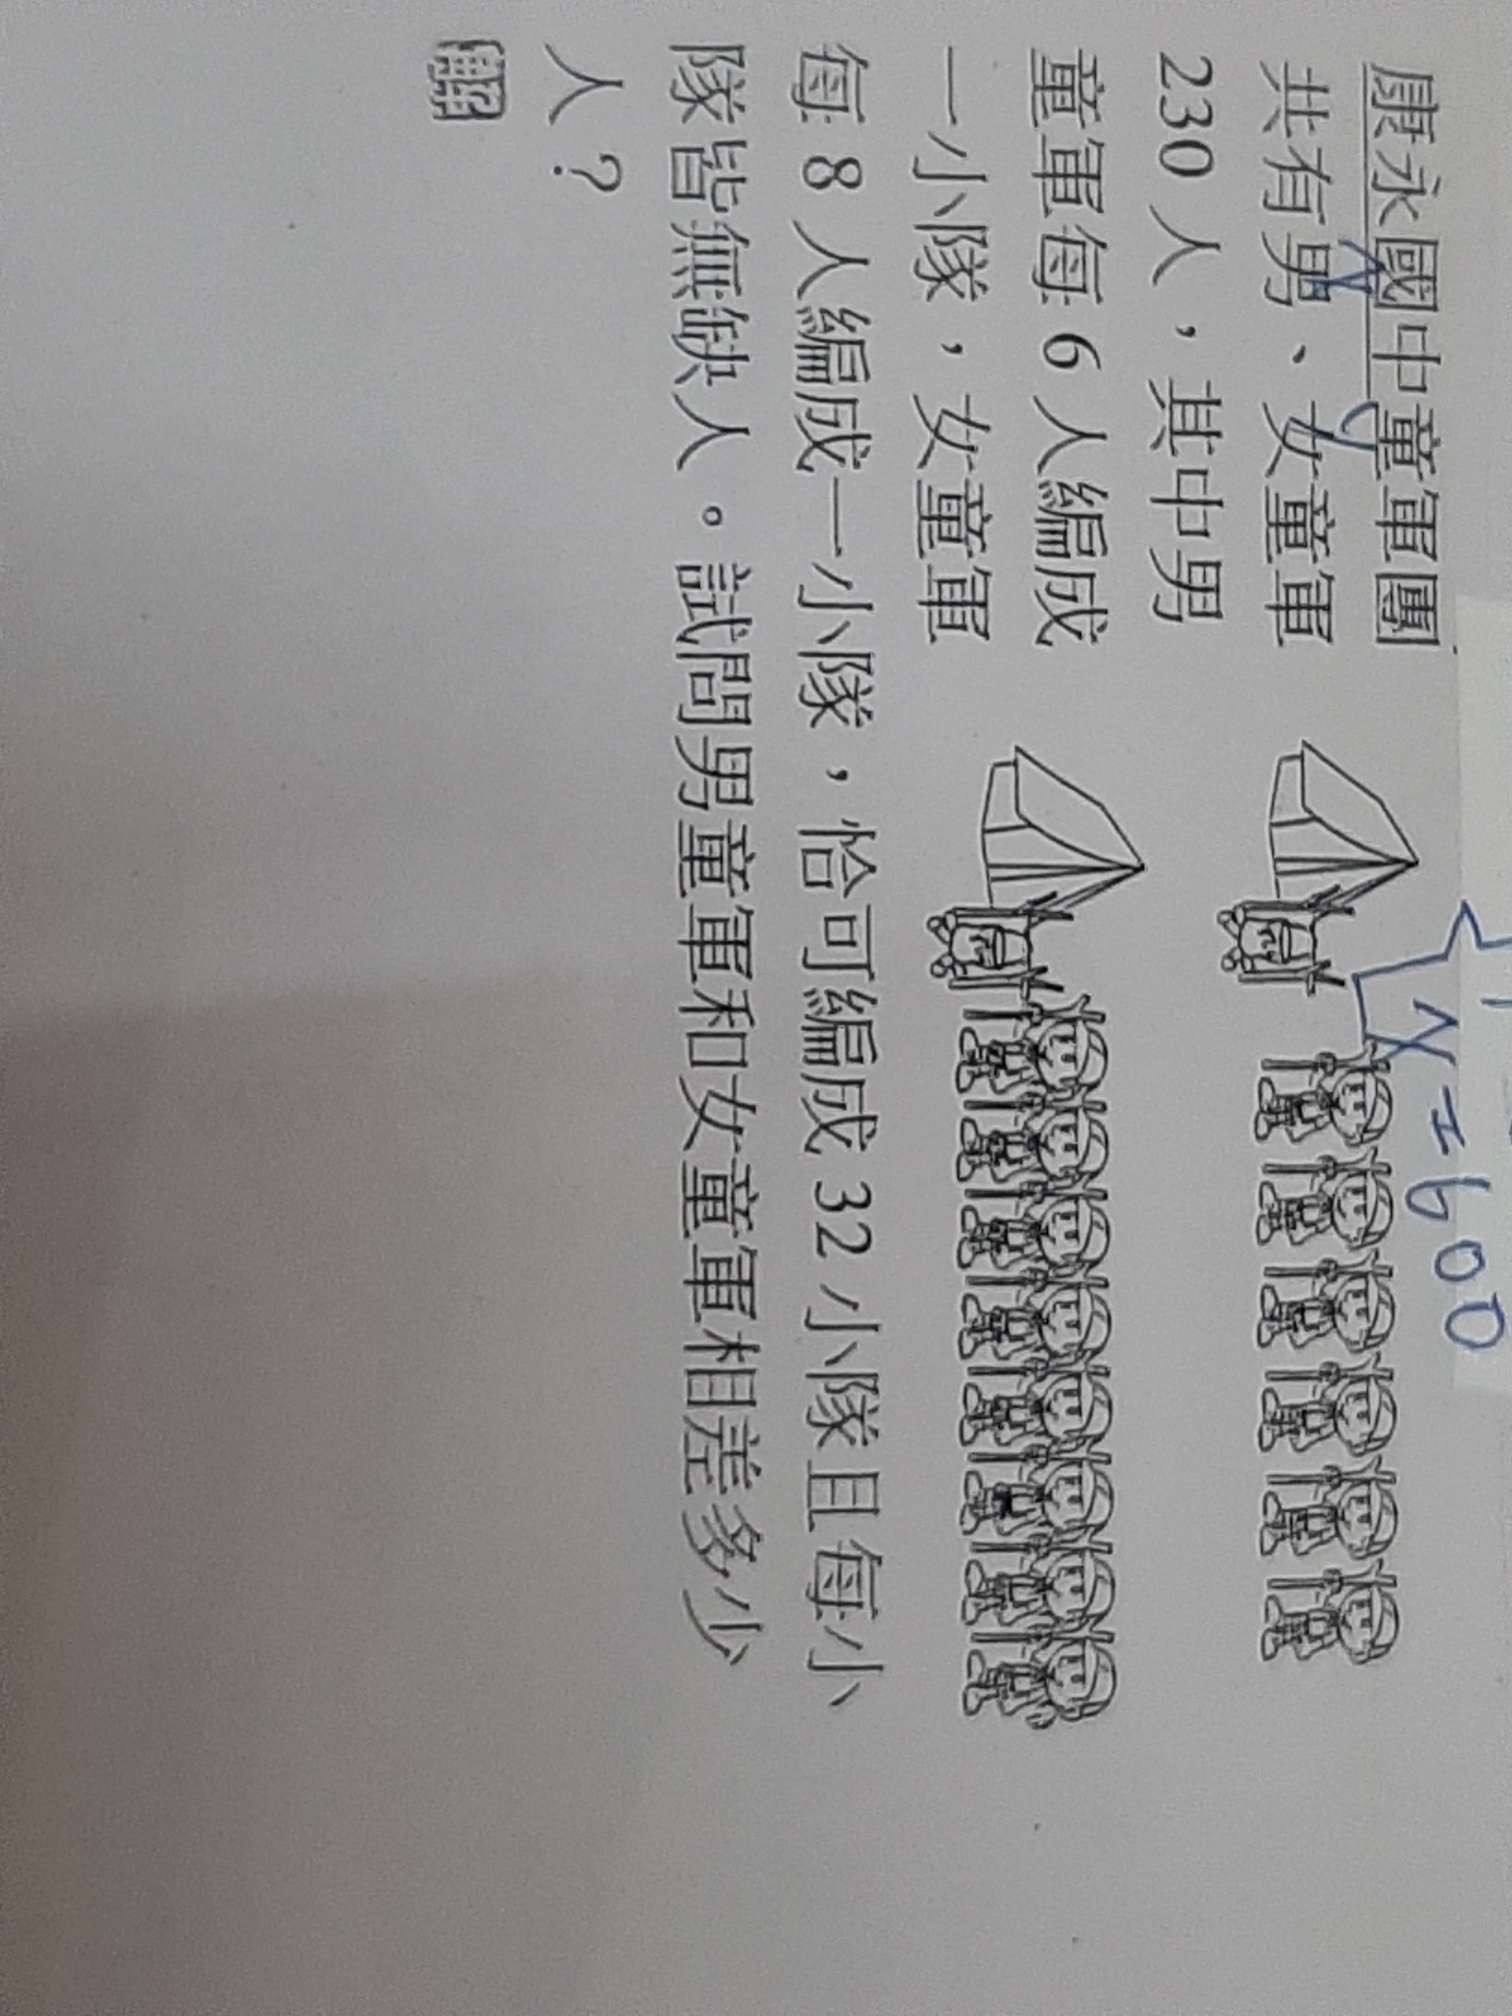 x=600
康永國中童軍團
x
y
共有男、女童軍
230 人，其中男
童軍每 6 人編成
一小隊，女童軍
每 8 人編成一小隊，恰可編成 32 小隊且每小
隊皆無缺人。試問男童軍和女童軍相差多少
人？
解